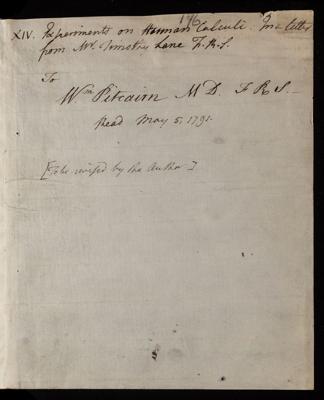 176
XIV. Experiments on Human Calculi. In a letter
from Mr. Timothy Lane F.R.S.
To
Wm Pitcairn M D. F R S—
Read May 5, 1791.
[To be revised by the Author]